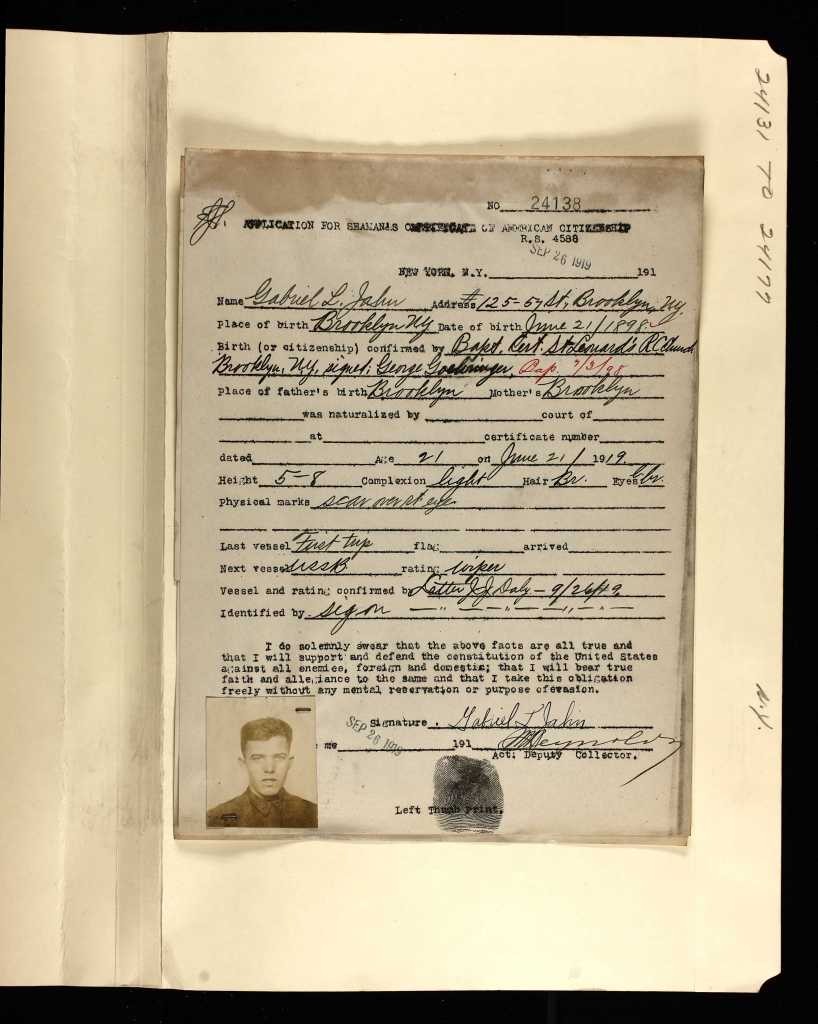 24131 TO 24177
NO 24138
APPLICATION FOR SEAMANLS CERTIFICATE OF AMERICAN CITIZENSHIP
R.S. 4588
SEP 26 1919
NEW YORK. N.Y. 191
Name Gabriel L. Jahn Address # 125-57 St, Brooklyn, Ny.
Place of birth Brooklyn NY Date of birth June 21/1898
Birth (or citizenship) confirmed by Bapt. Cert. St Leonard's R.C. Church
Brooklyn, NY, signed; George Bap. 7/3/98
Place of father's birth Brooklyn Mother's Brooklyn
was naturalized by court of
at certificate number
dated Age 21 on June 21/ 1919.
Height 5-8 Complexion light Hair Br. Eyes br.
Physical marks scar over rt eye
Last vessel First trip flag arrived
Next vessel USSB rating wiper
Vessel and rating confirmed by Letter J.J. Daly - 9/26/19
Identified by sig on - " - " - " - " -
I do solemnly swear that the above facts are all true and
that I will support and defend the constitution of the United States
against all enemies, foreign and domestic; that I will bear true
faith and allegiance to the same and that I take this obligation
freely without any mental reservation or purpose ofevasion.
Signature . Gabriel L Jahn
SEP 26 1919
me 191 Reynolds
Act: Deputy Collector.
Left Thumb Print.
N.Y.